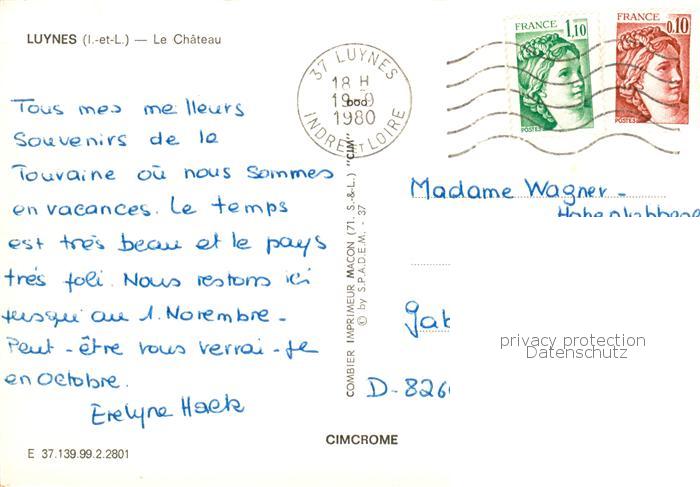 LUYNES (I.-et-L.) — Le Château
Tous mes meilleurs
Souvenirs de la
Touraine où nous sommes
en vacances. Le temps
est très beau et le pays
très joli. Nous restons ici
jusqu'au 1. Novembre -
Peut-être vous verrai-je
en Octobre.
Evelyne Hack
E 37.139.99.2.2801
37 LUYNES
18 H
19-9
1980
INDRE et LOIRE
COMBIER IMPRIMEUR MACON (71. S.-&-L.) "CIM"
© by S.P.A.D.E.M. - 37
CIMCROME
FRANCE 1,10
POSTES
FRANCE 0,10
POSTES
Madame Wagner -
D-826
privacy protection
Datenschutz